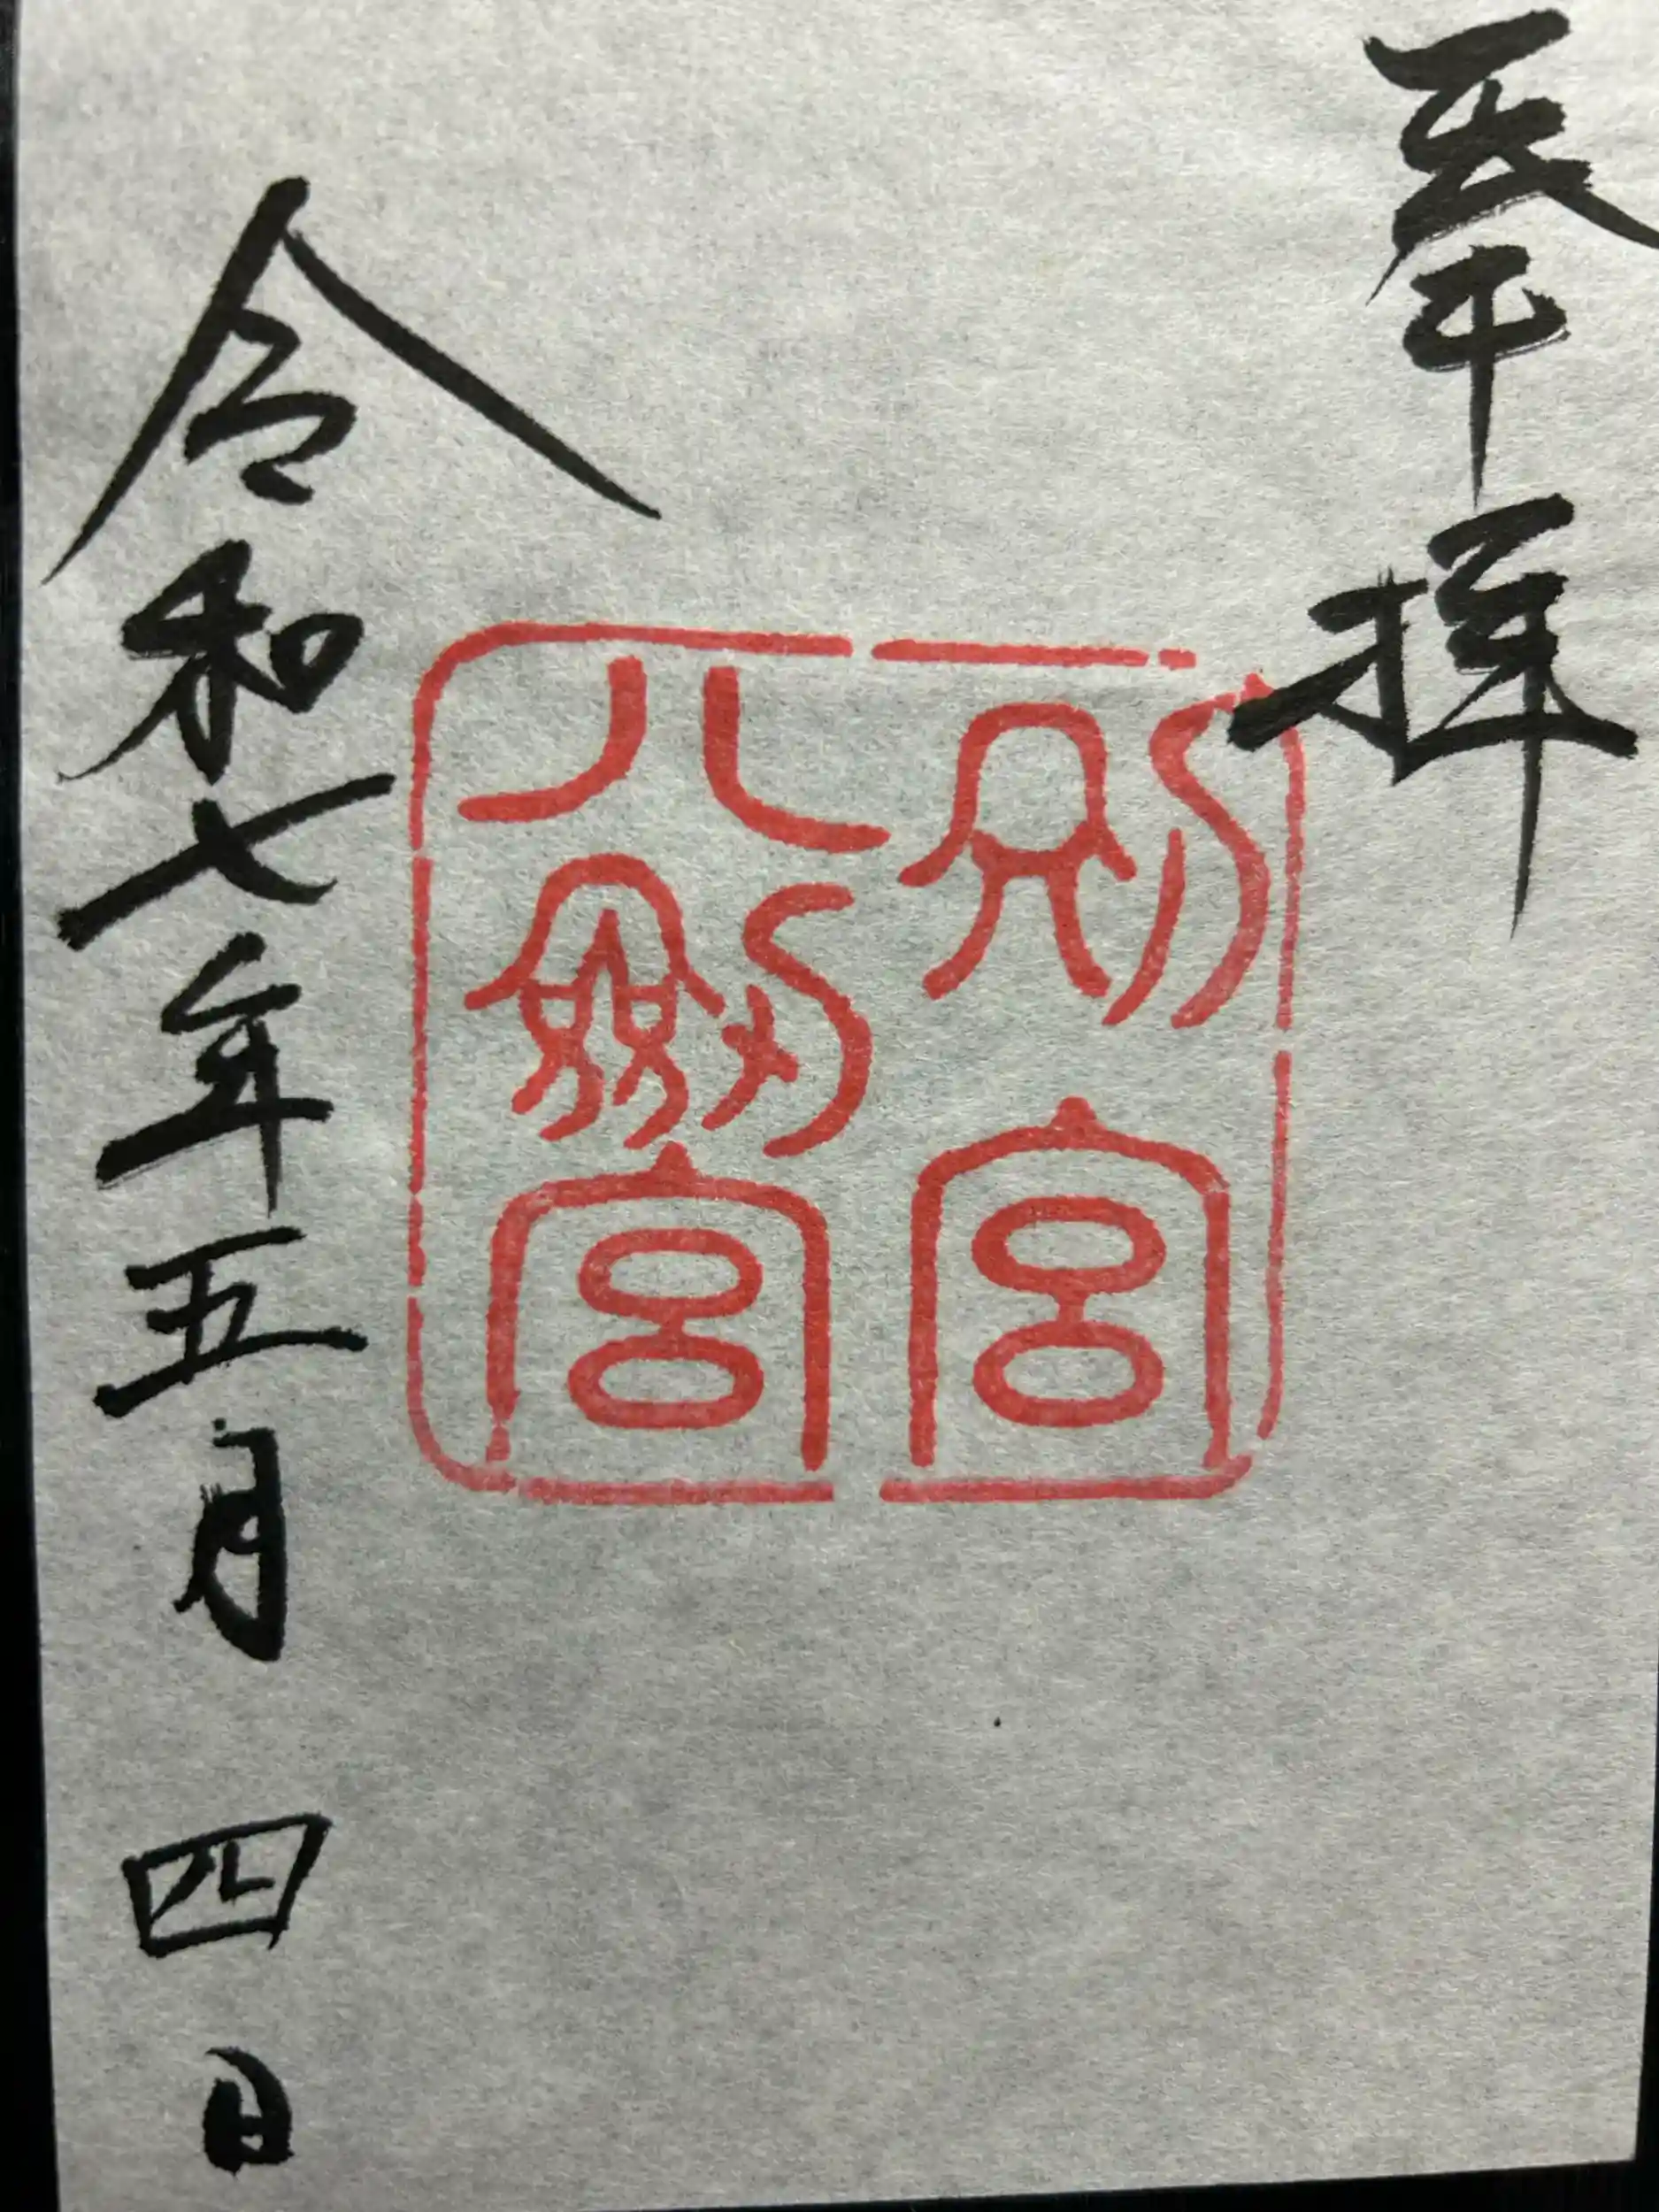 奉拝
別宮
八劔宮
令和七年五月四日